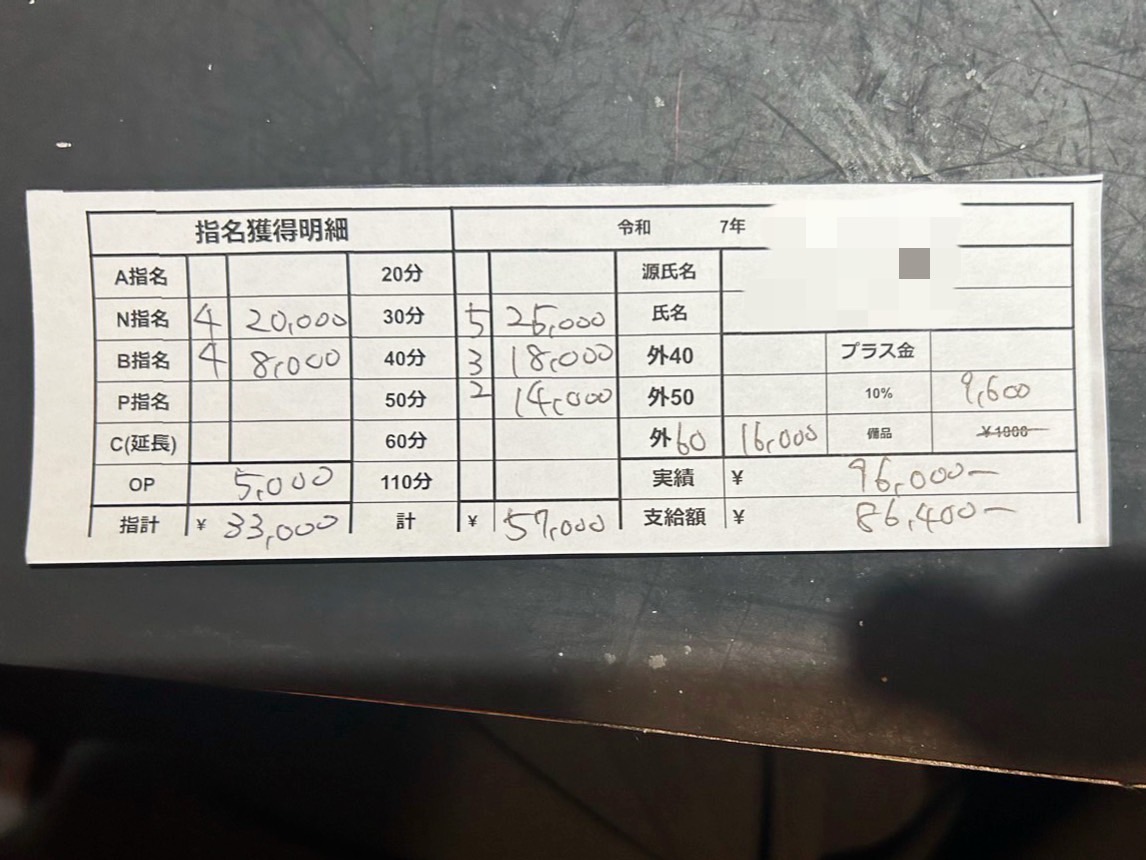 指名獲得明細 令和 7年
A指名 20分 源氏名
N指名 4 20,000 30分 5 25,000 氏名
B指名 4 8,000 40分 3 18,000 外40 プラス金
P指名 50分 2 14,000 外50 10% 9,600
C(延長) 60分 外60 16,000 備品 ¥1000
OP 5,000 110分 実績 ¥ 96,000-
指計 ¥ 33,000 計 ¥ 57,000 支給額 ¥ 86,400-